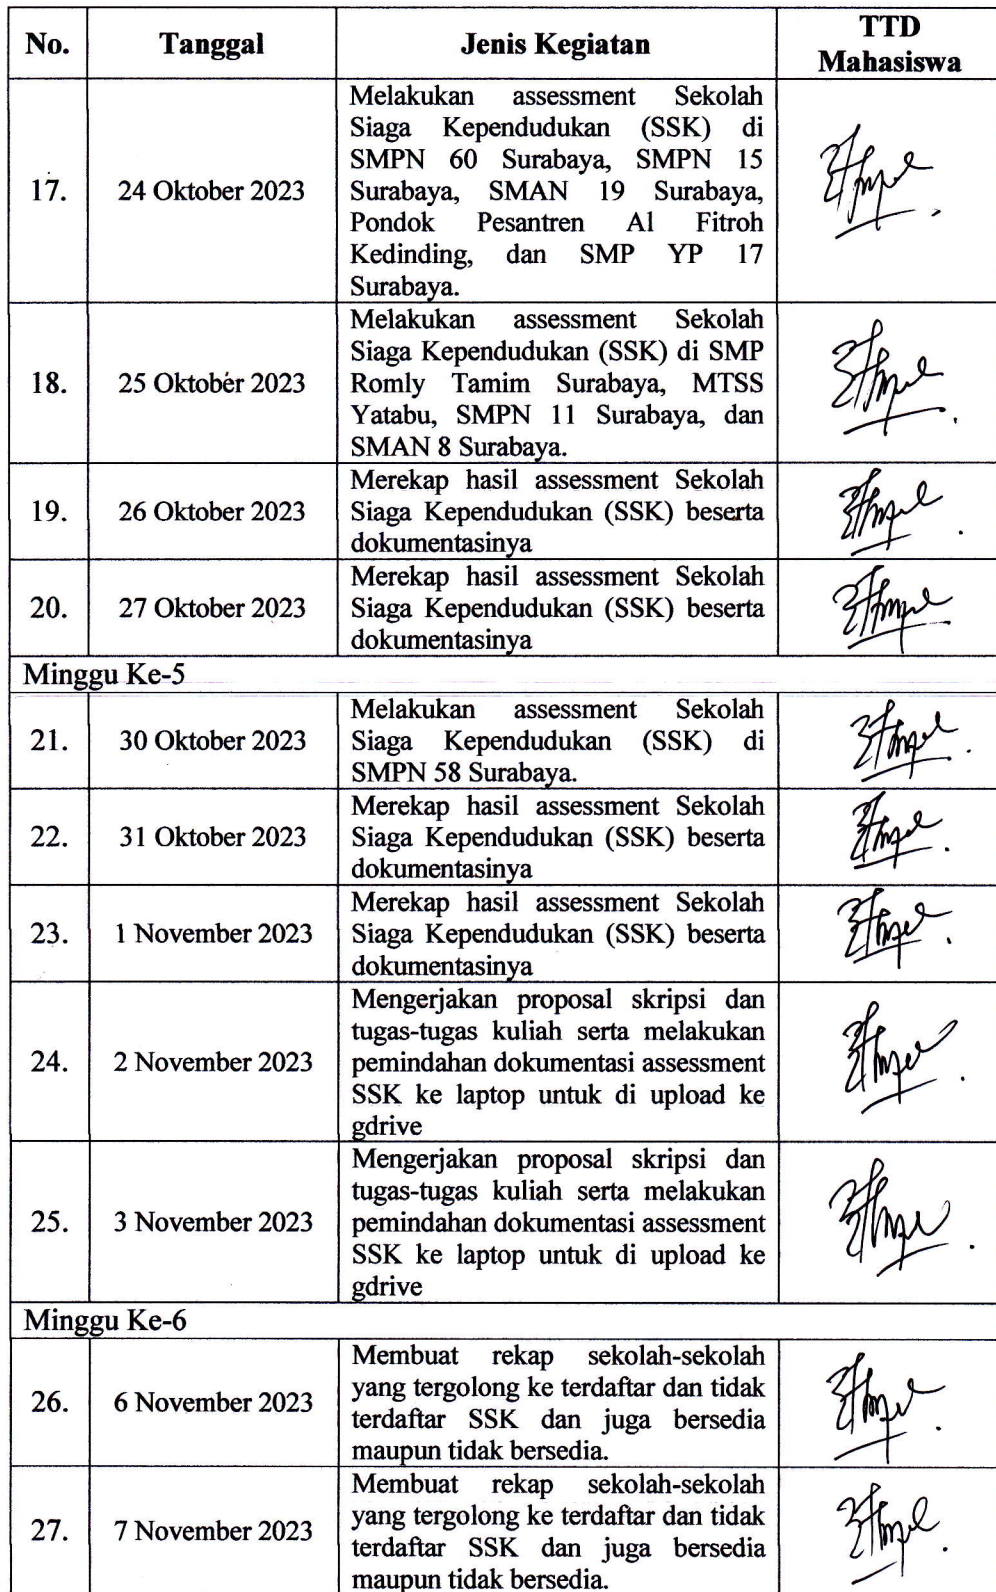 No. Tanggal Jenis Kegiatan TTD
Mahasiswa
17. 24 Oktober 2023 Melakukan assessment Sekolah
Siaga Kependudukan (SSK) di
SMPN 60 Surabaya, SMPN 15
Surabaya, SMAN 19 Surabaya,
Pondok Pesantren Al Fitroh
Kedinding, dan SMP YP 17
Surabaya.
18. 25 Oktober 2023 Melakukan assessment Sekolah
Siaga Kependudukan (SSK) di SMP
Romly Tamim Surabaya, MTSS
Yatabu, SMPN 11 Surabaya, dan
SMAN 8 Surabaya.
19. 26 Oktober 2023 Merekap hasil assessment Sekolah
Siaga Kependudukan (SSK) beserta
dokumentasinya
20. 27 Oktober 2023 Merekap hasil assessment Sekolah
Siaga Kependudukan (SSK) beserta
dokumentasinya
Minggu Ke-5
21. 30 Oktober 2023 Melakukan assessment Sekolah
Siaga Kependudukan (SSK) di
SMPN 58 Surabaya.
22. 31 Oktober 2023 Merekap hasil assessment Sekolah
Siaga Kependudukan (SSK) beserta
dokumentasinya
23. 1 November 2023 Merekap hasil assessment Sekolah
Siaga Kependudukan (SSK) beserta
dokumentasinya
24. 2 November 2023 Mengerjakan proposal skripsi dan
tugas-tugas kuliah serta melakukan
pemindahan dokumentasi assessment
SSK ke laptop untuk di upload ke
gdrive
25. 3 November 2023 Mengerjakan proposal skripsi dan
tugas-tugas kuliah serta melakukan
pemindahan dokumentasi assessment
SSK ke laptop untuk di upload ke
gdrive
Minggu Ke-6
26. 6 November 2023 Membuat rekap sekolah-sekolah
yang tergolong ke terdaftar dan tidak
terdaftar SSK dan juga bersedia
maupun tidak bersedia.
27. 7 November 2023 Membuat rekap sekolah-sekolah
yang tergolong ke terdaftar dan tidak
terdaftar SSK dan juga bersedia
maupun tidak bersedia.